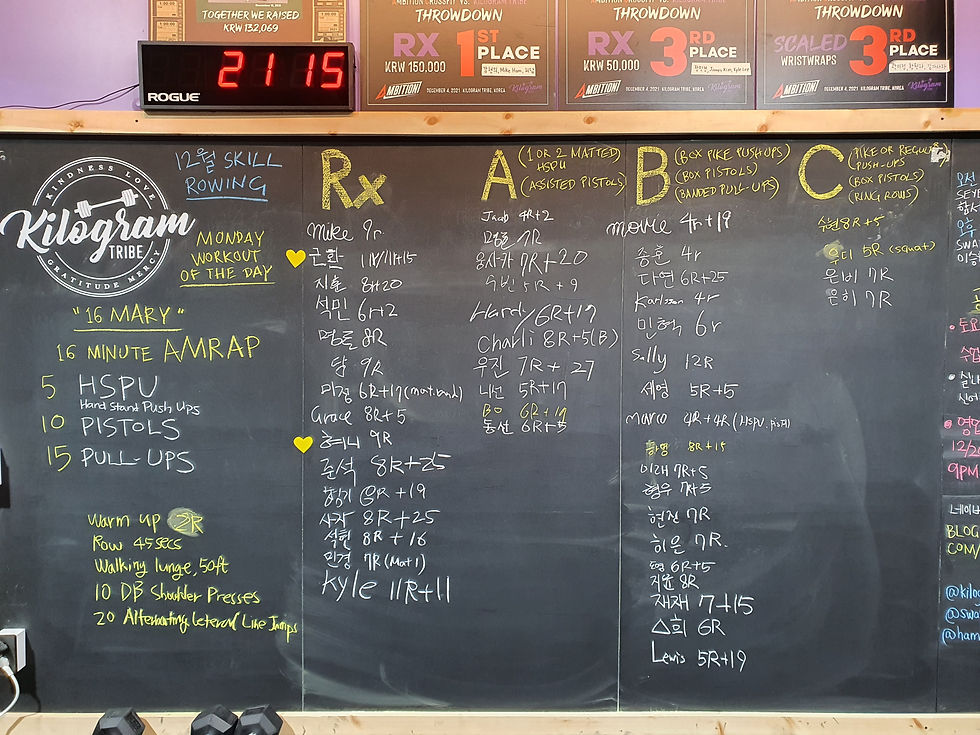 TOGETHER WE RAISED
KRW 132,069
21 15
ROGUE
AMBITION CROSSFIT VS. KILOGRAM TRIBE
THROWDOWN
RX 1ST PLACE
KRW 150,000
AMBITION! DECEMBER 4, 2021 KILOGRAM TRIBE, KOREA Kilogram
THROWDOWN
RX 3RD PLACE
KRW 50,000
AMBITION! DECEMBER 4, 2021 KILOGRAM TRIBE, KOREA Kilogram
THROWDOWN
SCALED 3RD PLACE
WRISTWRAPS
AMBITION! DECEMBER 4, 2021 KILOGRAM TRIBE, KOREA Kilogram
KINDNESS LOVE
Kilogram
TRIBE
GRATITUDE MERCY
12월 SKILL
ROWING
MONDAY
WORKOUT
OF THE DAY
"16 MARY"
16 MINUTE AMRAP
5 HSPU
Hand Stand Push Ups
10 PISTOLS
15 PULL-UPS
Warm up 2R
Row 45secs
Walking lunge, 50ft
10 DB Shoulder Presses
20 Alternating Lateral Line Jumps
Rx
Mike 9r
근환
지훈 8H20
석민 6r+2
명훈 8R
담 9R
미정 6R+17
Grace 8R+5
9R
준석 8R+25
+19
사자 8R+25
석현 8R+16
민경 7R (Mat 1)
Kyle 11R+11
A (1 OR 2 MATTED)
HSPU
(ASSISTED PISTOLS)
Jacob 4R+2
7R
7R+20
5R+9
Hardy 6R+17
Charli 8R+5(B)
우진 7R+27
나선 5R+17
BO 6R+17
동선 6R+5
B (BOX PIKE PUSHUPS)
(BOX PISTOLS)
(BANDED PULL-UPS)
movie 4r+19
종훈 4r
다연 6R+25
Karlsson 4r
민혁 6r
Sally 12R
세영 5R+5
Marco 4R+4R
하영 8R+15
미래 7R+5
형우 7R+5
현진 7R
히은 7R.
6R+5
지윤 8R
재재 7+15
△희 6R
Lewis 5R+19
C (PIKE OR REGULAR
PUSH-UPS
(BOX PISTOLS)
(RING ROWS)
수현 8R+5
우디 5R (squat)
은비 7R
은히 7R
오전
오후
12/2
9PM
네이버
BLOG
COM/
@kilo
@swa
@ham